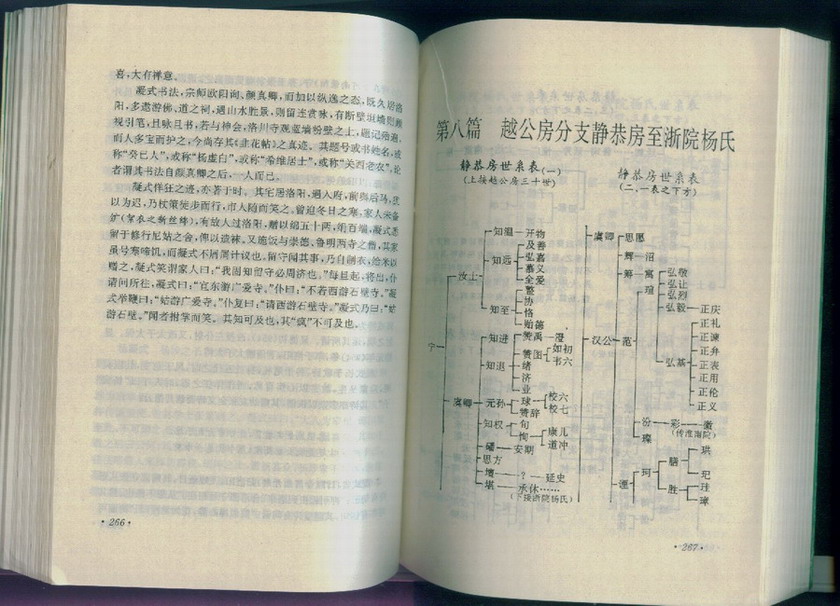 喜,大有禅意。
凝式书法,宗师欧阳询、颜真卿,而加以纵逸之态,既久居洛
阳,多遨游佛、道之祠,遇山水胜景,则留连赏咏,有断壁垣墙则
视引笔,且咏且书,若与神会,洛川寺观蓝墙粉壁之上,题记殆遍。
而人多宝而护之,今尚存其《韭花帖》之真迹。其题号或书姓名,或
称“癸巳人”,或称“杨虚白”,或称“希维居士”,或称“关西老农”,论
者谓其书法自颜真卿之后,一人而已。
凝式佯狂之迹,亦著于时。其宅居洛阳,遇入府,前舆后马,犹
以为迟,乃杖策徒步而行,市人随而笑之。曾迫冬日之寒,家人未备
有故人过洛阳,赠以绵五十两,绢百端,凝式悉
留于修行尼姑之舍,俾以造袜,又施饭与崇德、鲁明两寺之僧,其家
虽号寒啼饥,而凝式不屑屑计议也。留守闻其事,乃自制衣,给米以
赠之,凝式笑谓家人曰:“我固知留守必周济也。”每旦起,将出,仆
请问所往,凝式曰:“宜东游广爱寺。”仆曰:“不若西游石壁寺。”凝
式举鞭曰:“姑游广爱寺。”仆复曰:“请西游石壁寺。”凝式乃曰:“姑
游石壁。”闻者拊掌而笑。其知可及也,其“疯”不可及也。
·266·
第八篇 越公房分支静恭房至浙院杨氏
静恭房世系表(一)
(上接越公房三十世)
宁
汝士
知温 开物
知远 及善
弘嘉
嘉义
全爱
知至
协
恪
贻德
虞卿
知进 赞禹
知退 赞图 如初
韦六
绪
济
业
元孙 球 校六
赞辞 校七
知权 旬 康儿
恂 道冲
安期
思方
坛 ? 延史
堪 承休……
(下接浙院杨氏)
静恭房世系表
(二、一表之下方)
虞卿 思愿
辉 沼
筹 寓 弘敬
瑄 弘让
弘烈
弘毅 正庆
汉公 范 弘基
正礼
正谏
正弁
正表
正用
正伦
正义
汾 彩
璨
珂 膳 珙
玘
胜 珪
璋
·267·